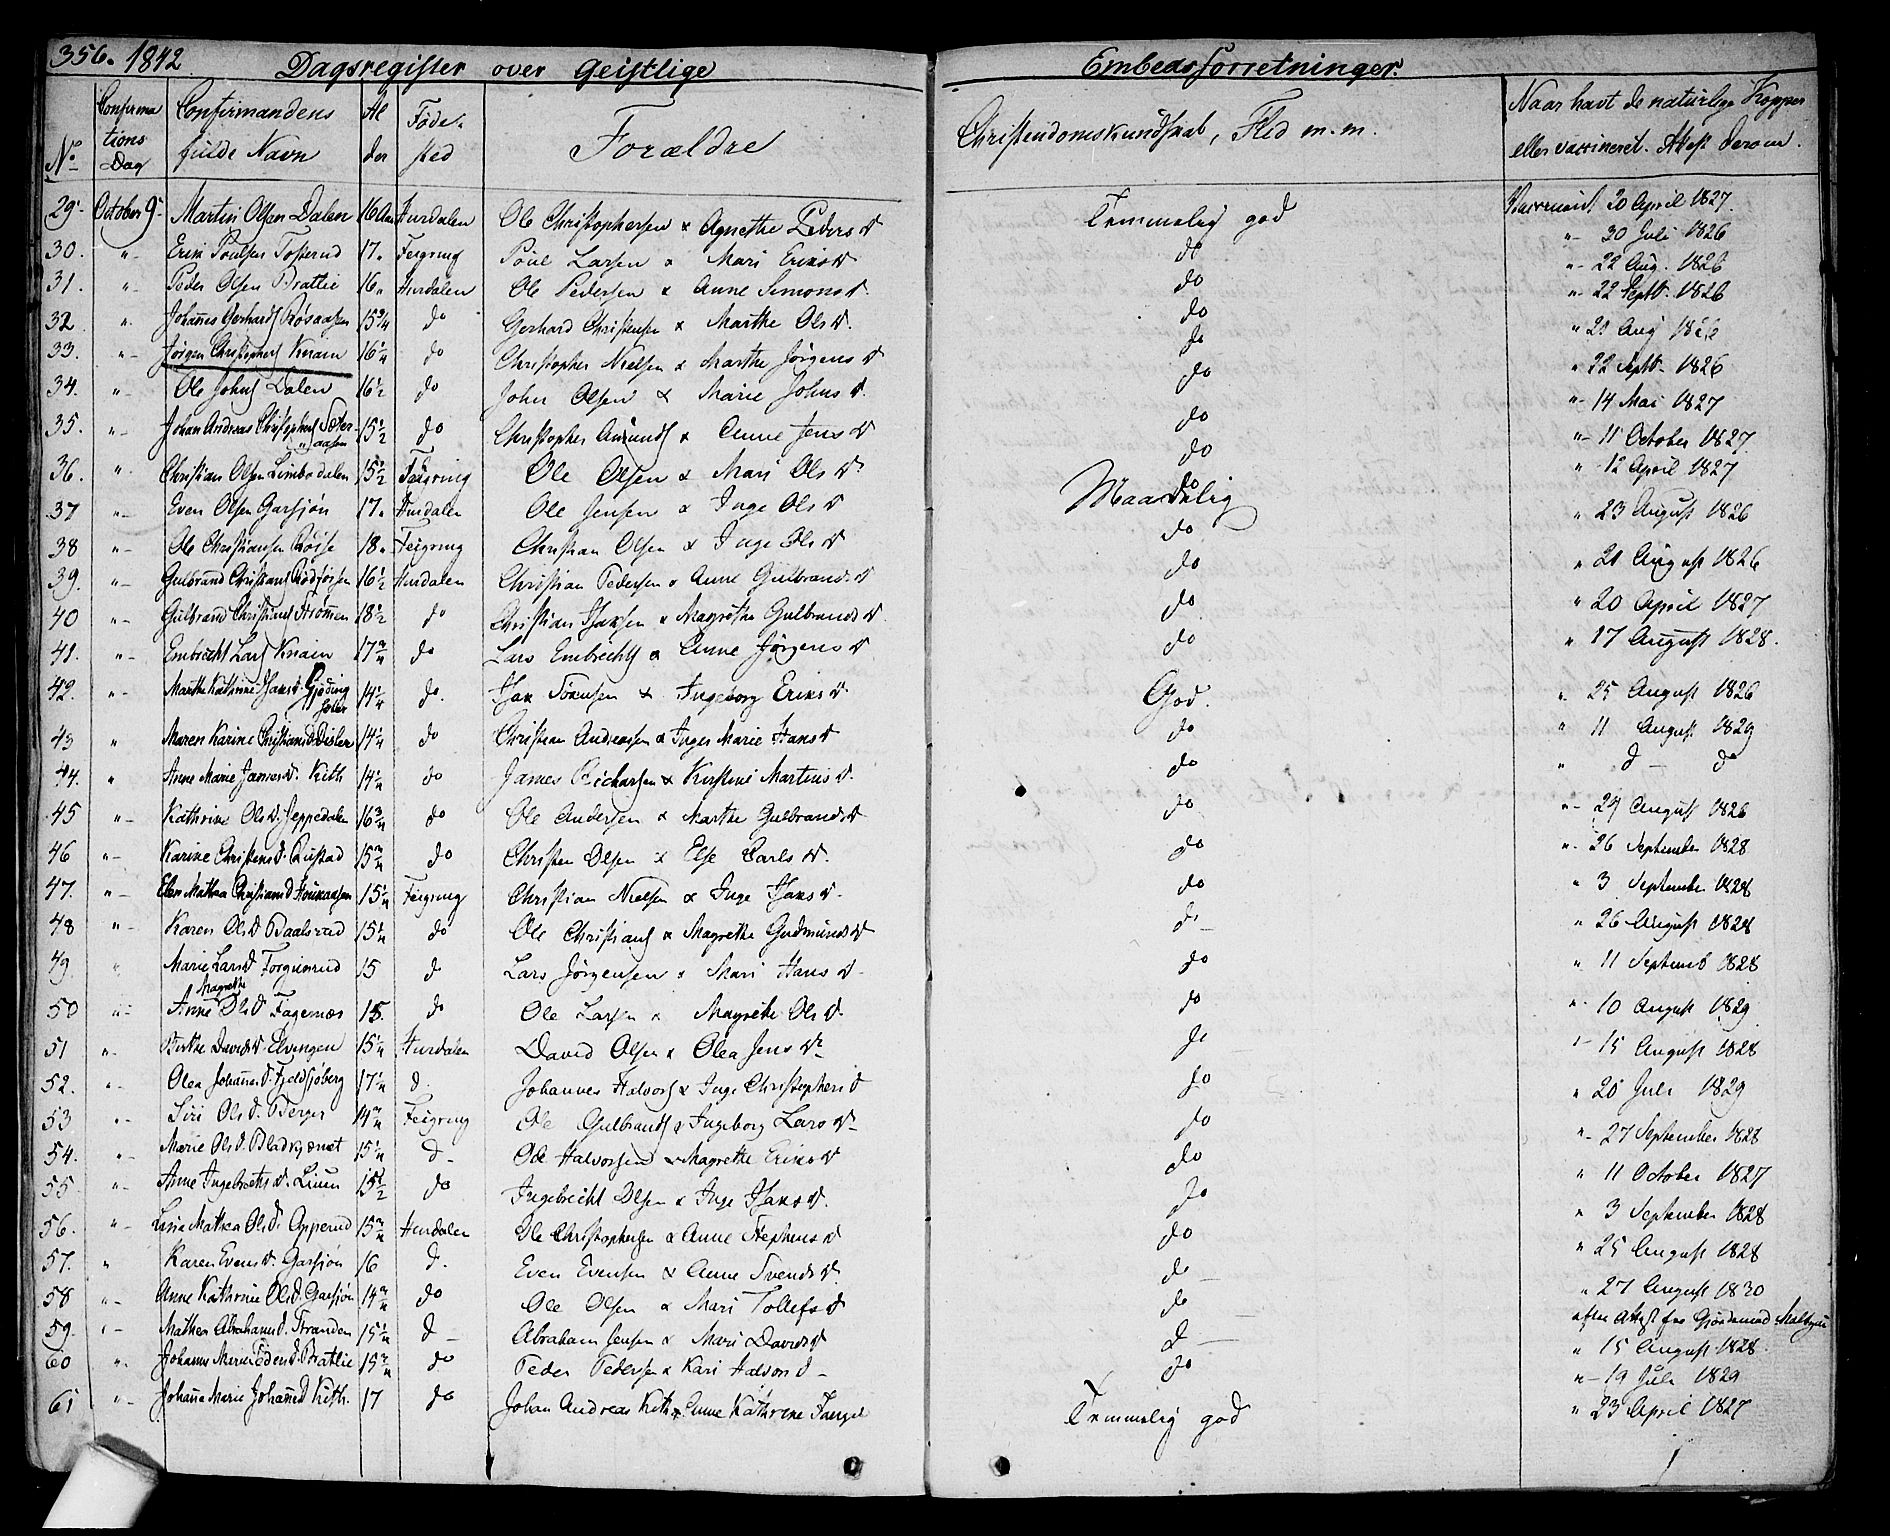 356. 1842 Dagsregister over Geistlige Embedsforretninger.
No Confirmations Dag Confirmandens fulde Navn Alder Fødested Forældre Christendomskundskab, Flid m. m. Naar havt de naturlige Kopper eller vaccineret. Attest derom.
29. October 9. Martin Olsen Dalen 16 Hurdalen Ole Christophersen & Agnethe Peders D Temmelig god Vaccineret 20 April 1827.
30. "- Erik Poulsen Tosterud 17. Feigring Poul Larsen & Mari Eriks D do "- 30 Juli 1826
31. "- Peder Olsen Bratlie 16. Hurdalen Ole Pedersen & Anne Simons D. do "- 22 Aug. 1826
32 "- Johannes Gerhards Røsaasen 15 3/4 do Gerhard Christensen & Marthe Ols D. do "- 22 Sept. 1826
33. "- Jørgen Christophers Knain 16 1/4 do Christopher Nielsen & Marthe Jørgens D do " 21 Aug 1826
34. "- Ole Johns Dalen 16 1/2 do John Olsen & Marie Johns D. do " 22 Sept. 1826
35. "- Johan Andreas Christophers Sæteraasen 15 1/2 do Christopher Amunds & Anne Jens D do "- 14 Mai 1827
36. "- Christian Olsen Limbodalen 15 1/2 Feigring Ole Olsen & Mari Ols D. do "- 11 October 1827.
37 "- Even Olsen Garsjøn 17. Hurdalen Ole Jensen & Inge Ols D Maadelig do " 12 April 1827
38 "- Ole Christiansen Røise 18. Feigring Christian Olsen & Inge Ols D do " 23 August 1826
39. "- Gulbrand Christians Rødfossen 16 1/2 Hurdalen Christian Pedersen & Anne Gulbrands D do " 21 August 1826
40 "- Gulbrand Christians Strømmen 18 1/2 do Christian Hansen & Magrethe Gulbrands D. do " 20 April 1827
41. "- Embrecht Lars Knain 17 3/4 do Lars Embrechts & Anne Jørgens D do " 17 August 1828.
42. "- Marthe Kathrine Hans D. Gjødingholer 14 1/4 do. Hans & Ingeborg Eriks D. God. " 25 August 1826
43 " Maren Karine Christians D. 14 1/4 do Christian Andreassen & Inger Marie Hans D do " 11 August 1829
44. " Anne Marie James D. Kith 14 1/4 do James Richardsen & Kirstine Martins D. do " d - d
45 "- Kathrine Ols D. Heppedalen 16 3/4 do Ole Andersen & Marthe Gulbrands D do "- 24 August 1826
46 "- Karine Christens D. Rustad 15 3/4 do Christen Olsen & Else Carls D. do "- 26 September 1828
47. "- Elen Mathea Christians D 15 1/4 Feigring Christian Nielsen & Inge Hans D. do " 3 September 1828
48 "- Karen Ols D Baalsrud 15 1/4 do Ole Christians & Magrethe Gudmunds D do " 26 August 1828
49 " Marie Lars D Torgunrud 15 d Lars Jørgensen & Mari Hans D. do " 11 Septemb 1828
50 "- Anne Magrethe Ols D. Fagernæs 15. do Ole Larsen & Magrethe Ols D. do " 10 August 1829
51 "- Berthe Davids D. Elvingen 15 1/4 Hurdalen David Olsen & Olea Jens D. do " 15 August 1828
52. "- Olea Johannes D. Fjeldsjøberg 17 1/4 d. Johannes Halvors & Inge Christophers D do " 20 Juli 1829
53 "- Siri Ols D. Berger 14 3/4 Feigring Ole Gulbrands & Ingeborg Lars D. do "- 27 September 1828
54. "- Marie Ols D. Bladkjernet 15 1/4 d - Ole Halvorsen & Magrethe Eriks D do " 11 October 1827
55. "- Anne Ingebrechts D. Lium 15 1/2 do Ingebrecht Olsen & Inge Hans D. do " 3 September 1828
56. "- Mathea Ols D. Opperud 15 3/4 Hurdalen Ole Christophersen & Anne Stephens D do " 25 August 1828
57. " Karen Evens D. Garsjøn 16 d. Even Evensen & Anne Svends D. do " 27 August 1830
58 "- Anne Kathrine Ols D. Garsjøn 14 3/4 do Ole Olsen & Mari Tollefs D do efter Attest fra
59. "- Mathea Abrahams D. Stranden 15 1/4 d - Abraham Jensen & Mari Davids D d " 15 August 1828.
60 "- Johanne Marie Peders D. Bratlie 15 3/4 do Peder Pedersen & Kari Halvors D - do "- 19 Juli 1829
61 "- Johanne Marie Johans D Kith. 17 do Johan Andreas Kith & Anne Kathrine Temmelig god " 23 April 1827